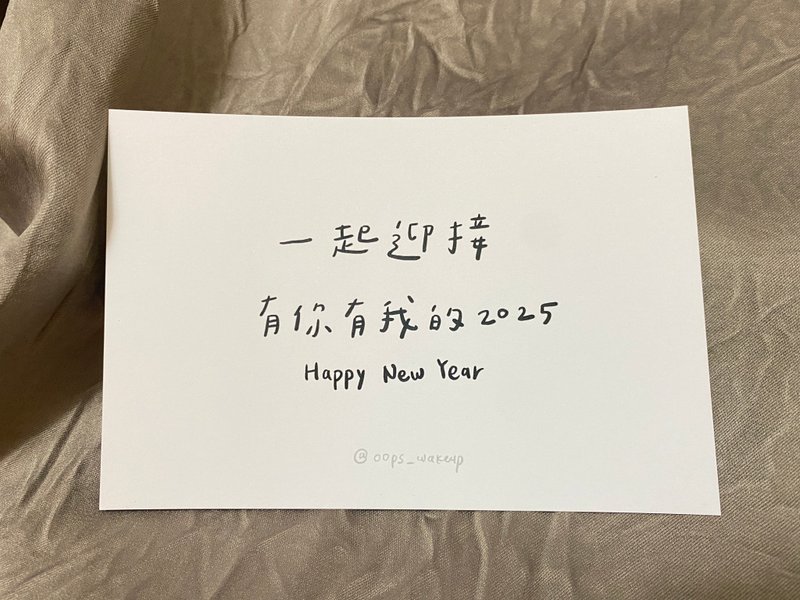 一起迎接
有你有我的2025
Happy New Year
@oops_wakeup